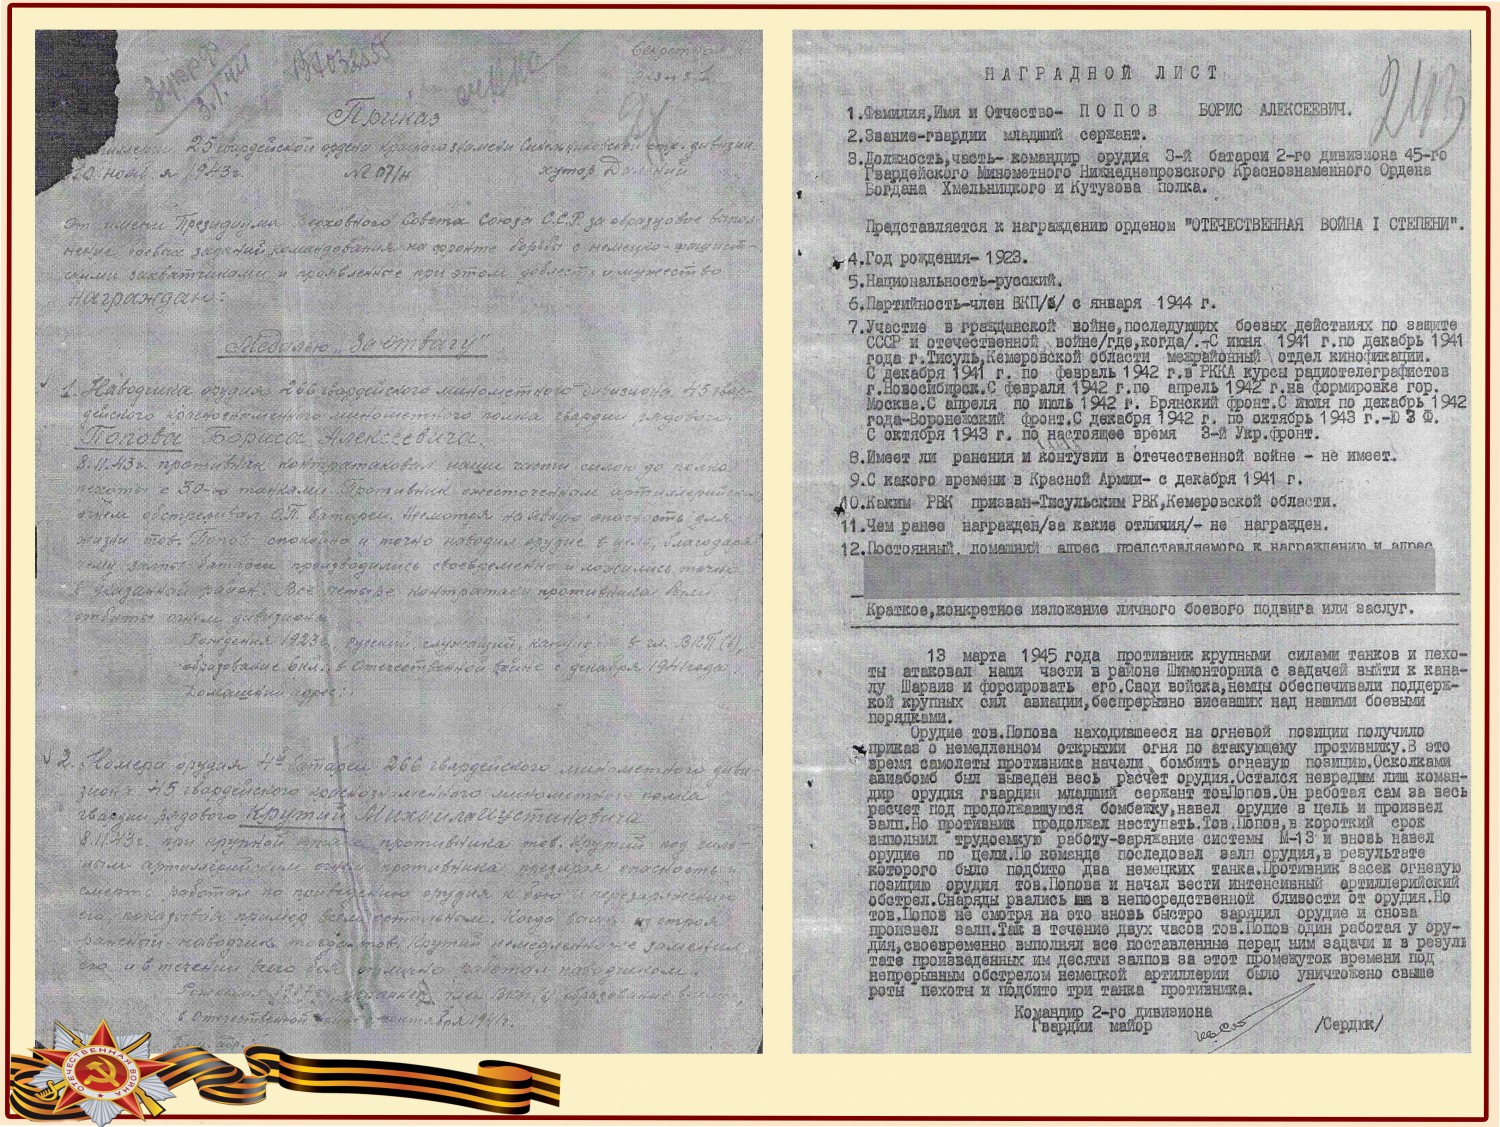 Приказ
25 гвардейской ордена красного знамени Синельниковской стр. дивизии.
1943г. № 071/н хутор Дальний
От имени Президиума Верховного Совета Союза С.С.Р. за образцовое выпол-
нение боевых заданий командования на фронте борьбы с немецко-фашист-
скими захватчиками и проявленные при этом доблесть и мужество
награждаю:
Медалью "За отвагу"
1. Наводчика орудия 266 гвардейского минометного дивизиона 45 гвар-
дейского краснознаменного минометного полка гвардии рядового
Попова Бориса Алексеевича.
8.11.43г. противник контратаковал наши части силою до полка
пехоты с 30-ю танками. Противник ожесточенным артиллерийским
огнем обстреливал О.П. батареи. Несмотря на явную опасность для
жизни тов. Попов спокойно и точно наводил орудие в цель, благодаря
чему залпы батареи производились своевременно и ложились точно
в указанный район. Все четыре контратаки противника были
отбиты огнем дивизиона.
Рождения 1923г., русский, служащий, в чл. ВКП(б),
образование 6кл., в Отечественной войне с декабря 1941года
Домашний адрес:
2. Номера орудия 4й батареи 266 гвардейского минометного диви-
зиона 45 гвардейского краснознаменного минометного полка
гвардии рядового Крутий Михаила Устиновича
8.11.43г. при крупной атаке противника тов. Крутий под силь-
ным артиллерийским огнем противника презирая опасность
смерти работал по приведению орудия к бою
его, показывая пример всем остальным. Когда вышел из строя
раненый наводчик тов. Крутий немедленно же заменил
его и в течении всего боя отлично работал наводчиком.
ВКП(б) образование
в Отечественной войне сентября 1941г.
НАГРАДНОЙ ЛИСТ
243
1.Фамилия,Имя и Отчество- ПОПОВ БОРИС АЛЕКСЕЕВИЧ.
2.Звание-гвардии младший сержант.
3.Должность,часть- командир орудия 3-й батареи 2-го дивизиона 45-го
Гвардейского Минометного Нижнеднепровского Краснознаменного Ордена
Богдана Хмельницкого и Кутузова полка.
Представляется к награждению орденом "ОТЕЧЕСТВЕННАЯ ВОЙНА I СТЕПЕНИ".
4.Год рождения- 1923.
5.Национальность-русский.
6.Партийность-член ВКП/б/ с января 1944 г.
7.Участие в гражданской войне,последующих боевых действиях по защите
СССР и отечественной войне/где,когда/.-С июня 1941 г.по декабрь 1941
года г.Тисуль,Кемеровской области межрайонный отдел кинофикации.
С декабря 1941 г. по февраль 1942 г.в РККА курсы радиотелеграфистов
г.Новосибирск.С февраля 1942 г.по апрель 1942 г.на формировке гор.
Москва.С апреля по июль 1942 г. Брянский фронт.С июля по декабрь 1942
года-Воронежский фронт.С декабря 1942 г. по октябрь 1943 г.-Ю З Ф.
С октября 1943 г. по настоящее время 3-й Укр.фронт.
8.Имеет ли ранения и контузии в отечественной войне - не имеет.
9.С какого времени в Красной Армии- с декабря 1941 г.
10.Каким РВК призван-Тисульским РВК,Кемеровской области.
11.Чем ранее награжден/за какие отличия/- не награжден.
12.Постоянный домашний адрес представляемого к награждению и адрес
Краткое,конкретное изложение личного боевого подвига или заслуг.
13 марта 1945 года противник крупными силами танков и пехо-
ты атаковал наши части в районе Шимонторниа с задачей выйти к кана-
лу Шарвиз и форсировать его.Свои войска,немцы обеспечивали поддерж-
кой крупных сил авиации,беспрерывно висевших над нашими боевыми
порядками.
Орудие тов.Попова находившееся на огневой позиции получило
приказ о немедленном открытии огня по атакующему противнику.В это
время самолеты противника начали бомбить огневую позицию.Осколками
авиабомб был выведен весь расчет орудия.Остался невредим лиш коман-
дир орудия гвардии младший сержант товПопов.Он работая сам за весь
расчет под продолжавшуюся бомбежку,навел орудие в цель и произвел
залп.Но противник продолжал наступать.Тов.Попов,в короткий срок
выполнил трудоемкую работу-заряжание системы М-13 и вновь навел
орудие по цели.По команде последовал залп орудия,в результате
которого было подбито два немецких танка.Противник засек огневую
позицию орудия тов.Попова и начал вести интенсивный артиллерийский
обстрел.Снаряды рвались в непосредственной близости от орудия.Но
тов.Попов не смотря на это вновь быстро зарядил орудие и снова
произвел залп.Так в течение двух часов тов.Попов один работая у ору-
дия,своевременно выполнял все поставленные перед ним задачи и в резуль
тате произведенных им десяти залпов за этот промежуток времени под
непрерывным обстрелом немецкой артиллерии было уничтожено свыше
роты пехоты и подбито три танка противника.
Командир 2-го дивизиона
Гвардии майор /Сердюк/
ОТЕЧЕСТВЕННАЯ ВОЙНА